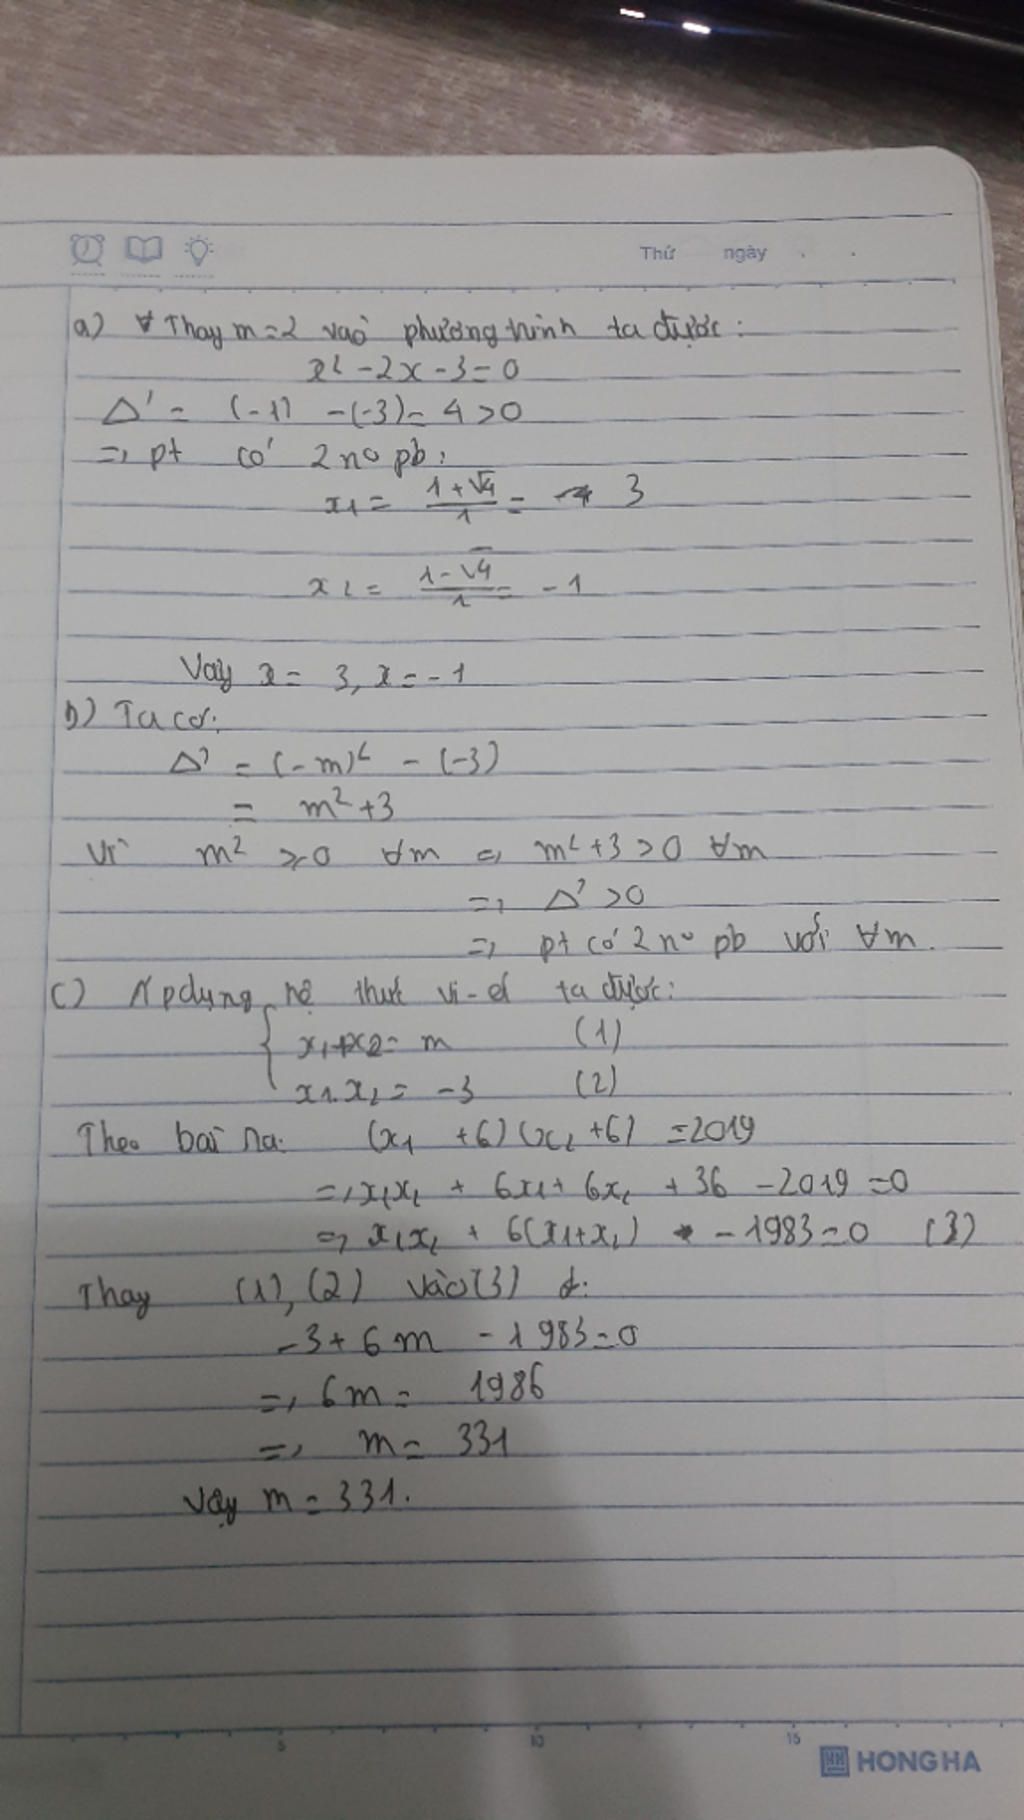 Thứ ngày
a) Thay m=2 vào phương trình ta được:
x² - 2x - 3 = 0
Δ' = (-1) - (-3) = 4 > 0
=> pt có 2 no pb:
x₁ = (1+√4)/1 = 3
x₂ = (1-√4)/1 = -1
Vậy x = 3, x = -1
b) Ta có:
Δ' = (-m)² - (-3)
= m² + 3
Vì m² ≥ 0 ∀m => m² + 3 > 0 ∀m
=> Δ' > 0
=> pt có 2 no pb với ∀m.
c) Áp dụng hệ thức vi-ét ta được:
{ x₁+x₂ = m (1)
x₁.x₂ = -3 (2)
Theo bài ra: (x₁ + 6)(x₂ + 6) = 2019
=> x₁x₂ + 6x₁ + 6x₂ + 36 - 2019 = 0
=> x₁x₂ + 6(x₁+x₂) - 1983 = 0 (3)
Thay (1), (2) vào (3) đ:
-3 + 6m - 1983 = 0
=> 6m = 1986
=> m = 331
Vậy m = 331.
5 10 15
HONG HA